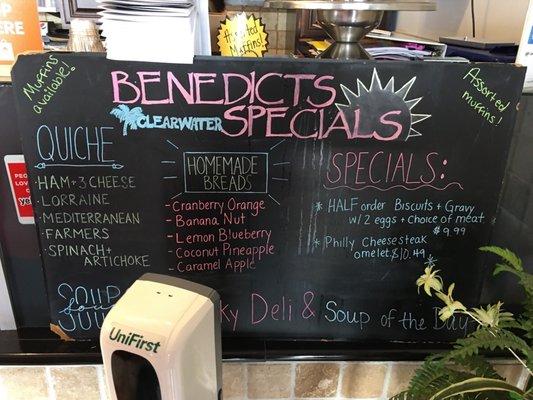 Muffins
available!
Assorted
Muffins
Assorted
muffins!
BENEDICTS
CLEARWATER
SPECIALS
QUICHE
-HAM + 3 CHEESE
-LORRAINE
-MEDITERRANEAN
-FARMERS
-SPINACH +
ARTICHOKE
HOMEMADE
BREADS
- Cranberry Orange
- Banana Nut
- Lemon Blueberry
- Coconut Pineapple
- Caramel Apple
SPECIALS:
* HALF order Biscuits + Gravy
w/ 2 eggs + choice of meat
$9.99
* Philly Cheesesteak
omelet $10.49
SOUP
ky Deli &
Soup of the Day
UniFirst